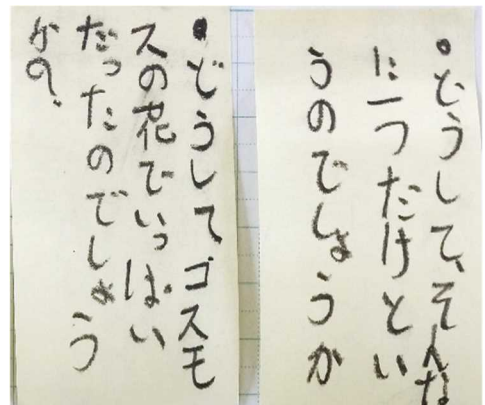 ・どうして、そんな
に一つだけとい
うのでしょうか
・どうしてゴスモ
スの花でいっぱい
だったのでしょう
かの。